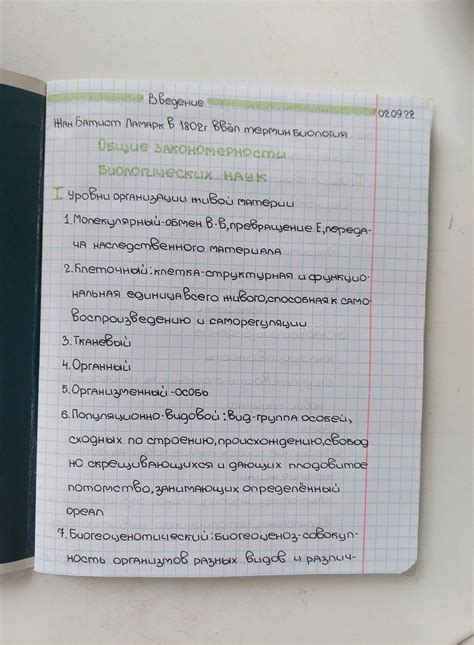 Введение
02.09.22
Жан Батист Ламарк в 1802г. Ввёл термин Биология
Общие закономерности
биологических наук
I Уровни организации живой материи
1.Молекулярный-обмен в-в,превращение Е,переда-
ча наследственного материала
2.Клеточный:клетка-структурная и функцио-
нальная единица всего живого,способная к само-
воспроизведению и саморегуляции
3.Тканевый
4.Органный
5.Организменный-особь
6.Популяционно-видовой:Вид-группа особей,
сходных по строению,происхождению,свобод
но скрещивающихся и дающих плодовитое
потомство,занимающих определённый
ореал
7.Биогеоценотический:Биогеоценоз-совокуп-
ность организмов разных видов и различ-